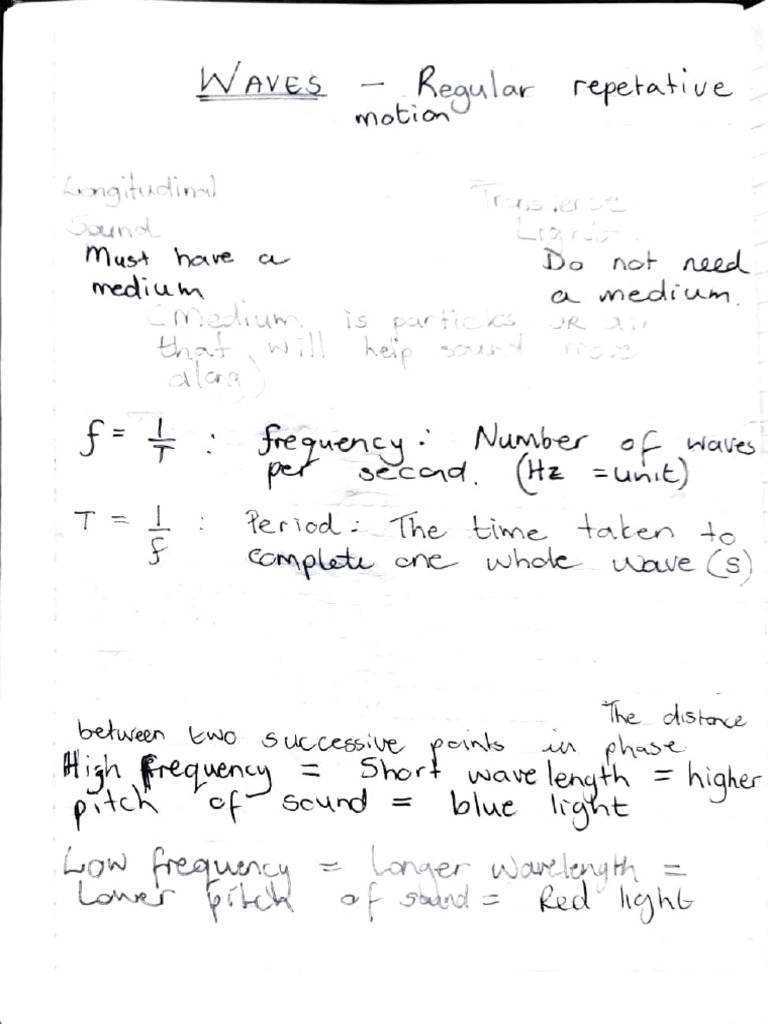 WAVES - Regular repetative
motion
Longitudinal Transverse
Sound Light
Must have a Do not need
medium a medium.
(Medium is particles OR air
that will help sound move
along)
f = 1/T : frequency: Number of waves
per second. (Hz = unit)
T = 1/f : Period: The time taken to
complete one whole wave (s)
The distance
between two successive points in phase
High frequency = Short wavelength = higher
pitch of sound = blue light
Low frequency = Longer wavelength =
Lower pitch of sound = Red light